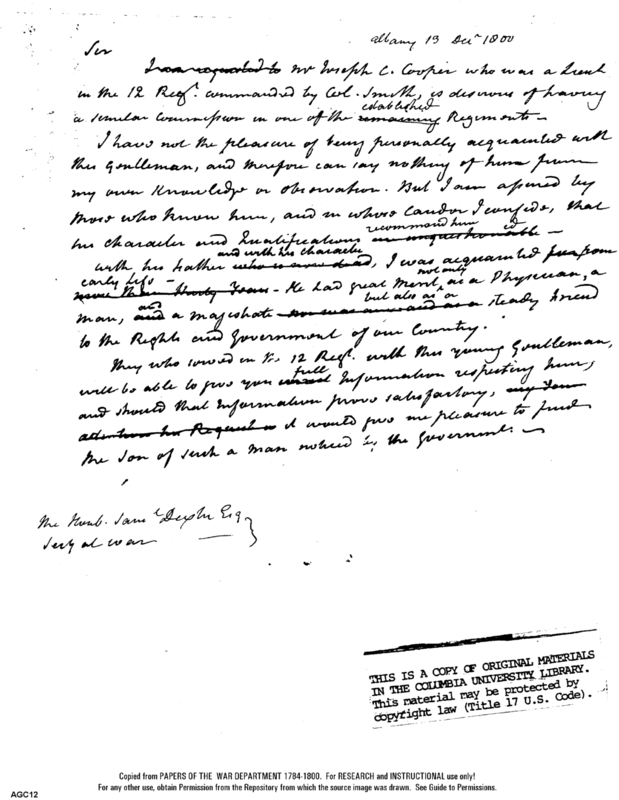 Albany 13 Decr 1800
Sir
I am requested to Mr Joseph C. Cooper who was a Lieut
in the 12 Regt. commanded by Col. Smith, is desirous of having
established
a similar Commission in one of the remaining Regiments —
I have not the pleasure of being personally acquainted with
this Gentleman, and therefore can say nothing of him from
my own Knowledge or observation. But I am assured by
those who know him, and in whose Candor I confide, that
recommend him
his character and Qualifications —
and with his character
with his father who is now dead, I was acquainted from
early life —
more than thirty Years — He had great Merit, not only as a Physician, a
but also as a
man, and a magistrate steady friend
to the Rights and Government of our Country.
They who served in the 12 Regt. with this young Gentleman,
full
will be able to give you Information respecting him;
and should that Information prove satisfactory,
it would give me pleasure to find
the son of such a man noticed by the Government. —
The Honb. Saml Dexter Esq
Secy at War
THIS IS A COPY OF ORIGINAL MATERIALS
IN THE COLUMBIA UNIVERSITY LIBRARY.
This material may be protected by
copyright law (Title 17 U.S. Code).
Copied from PAPERS OF THE WAR DEPARTMENT 1784-1800. For RESEARCH and INSTRUCTIONAL use only!
For any other use, obtain Permission from the Repository from which the source image was drawn. See Guide to Permissions.
AGC12